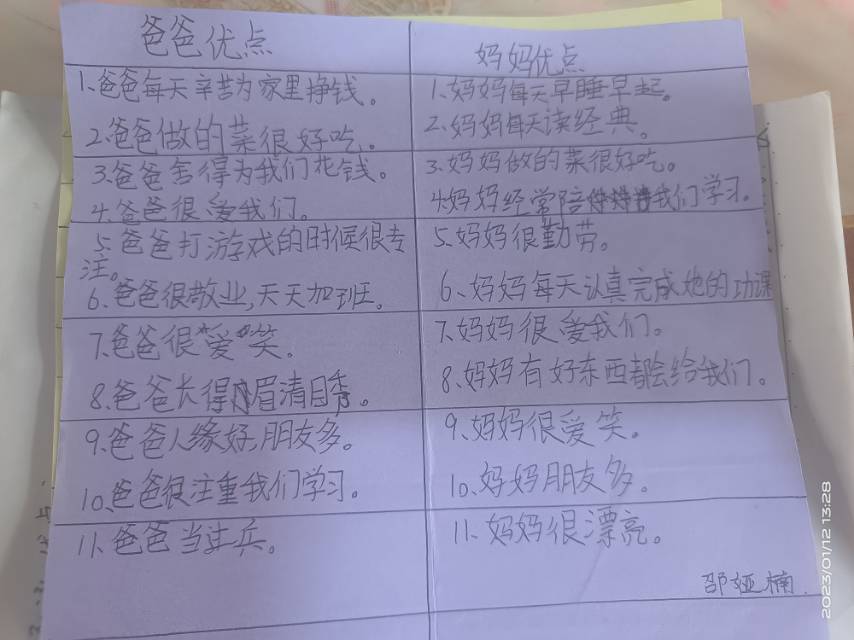 爸爸优点
1、爸爸每天辛苦为家里挣钱。
2、爸爸做的菜很好吃。
3、爸爸舍得为我们花钱。
4、爸爸很爱我们。
5、爸爸打游戏的时候很专
注。
6、爸爸很敬业,天天加班。
7、爸爸很"爱"笑。
8、爸爸长得眉清目秀。
9、爸爸人缘好,朋友多。
10、爸爸很注重我们学习。
11、爸爸当过兵。
妈妈优点
1、妈妈每天早睡早起。
2、妈妈每天读经典。
3、妈妈做的菜很好吃。
4、妈妈经常陪我们学习。
5、妈妈很勤劳。
6、妈妈每天认真完成她的功课
7、妈妈很爱我们。
8、妈妈有好东西都会给我们。
9、妈妈很爱笑。
10、妈妈朋友多。
11、妈妈很漂亮。
邵娅楠
2023/01/12 13:28